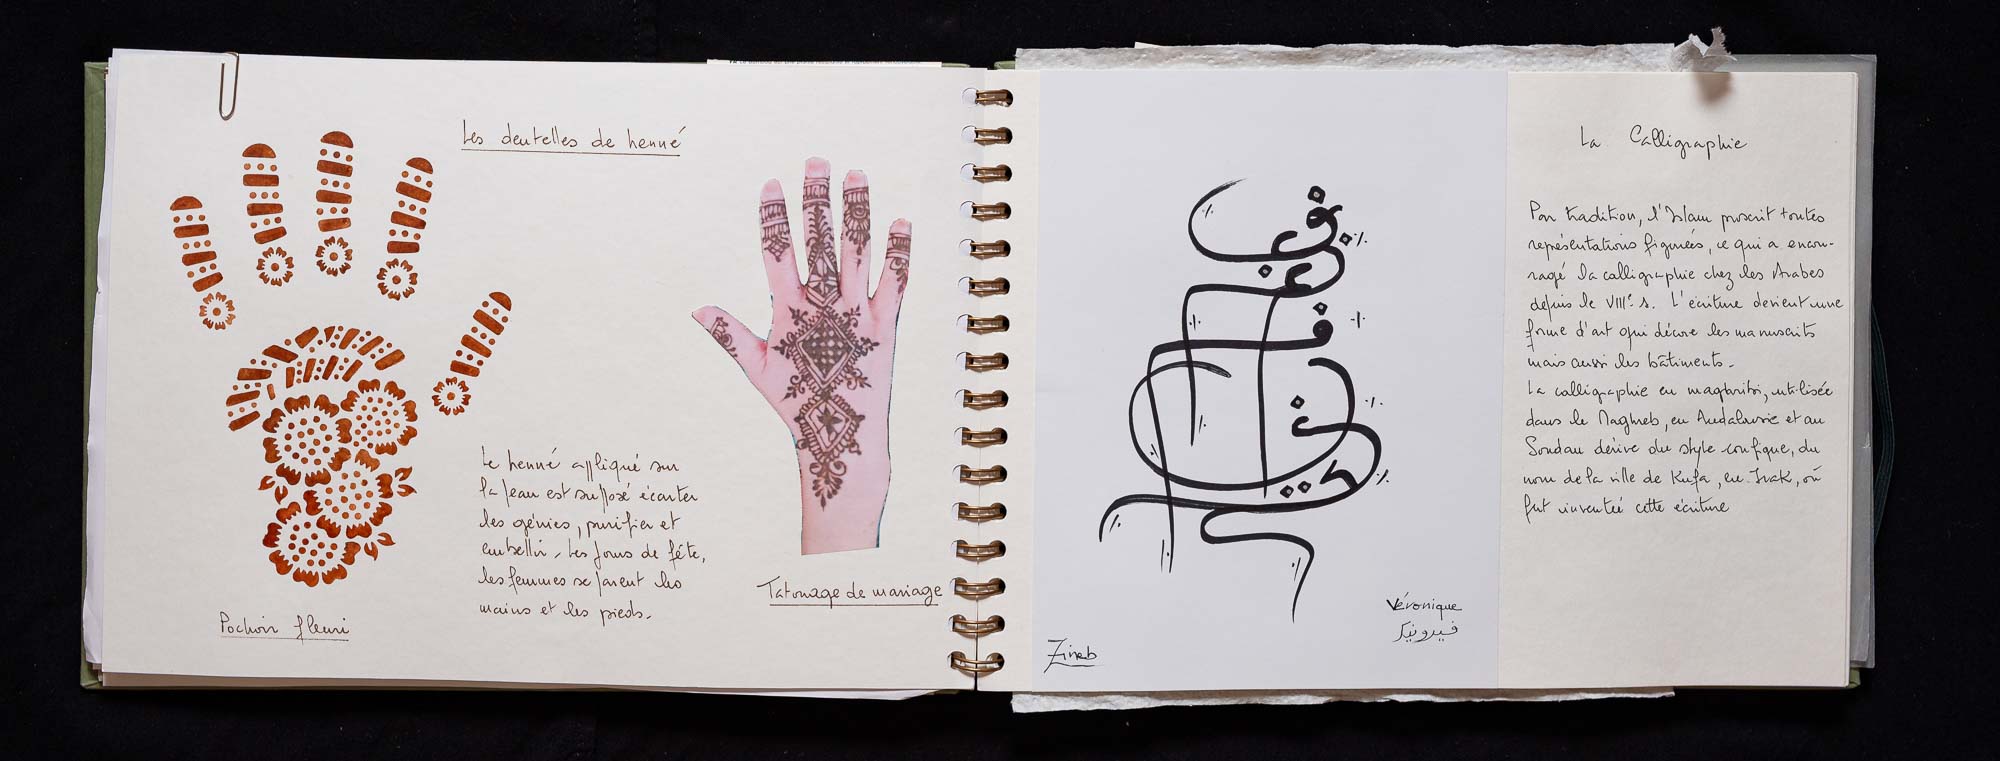 Les dentelles de henné
Le henné appliqué sur
la peau est supposé écarter
les génies, purifier et
embellir. Les jours de fête,
les femmes se parent les
mains et les pieds.
Pochoir fleuri
Tatouage de mariage
Zineb
Véronique
فيرونيك
La Calligraphie
Par tradition, l'Islam proscrit toutes
représentations figurées, ce qui a encou-
ragé la calligraphie chez les Arabes
depuis le VIIIe s. L'écriture devient une
forme d'art qui décore les manuscrits
mais aussi les bâtiments.
La calligraphie en maghribi, utilisée
dans le Maghreb, en Andalousie et au
Soudan dérive du style coufique, du
nom de la ville de Kufa, en Irak, où
fut inventée cette écriture